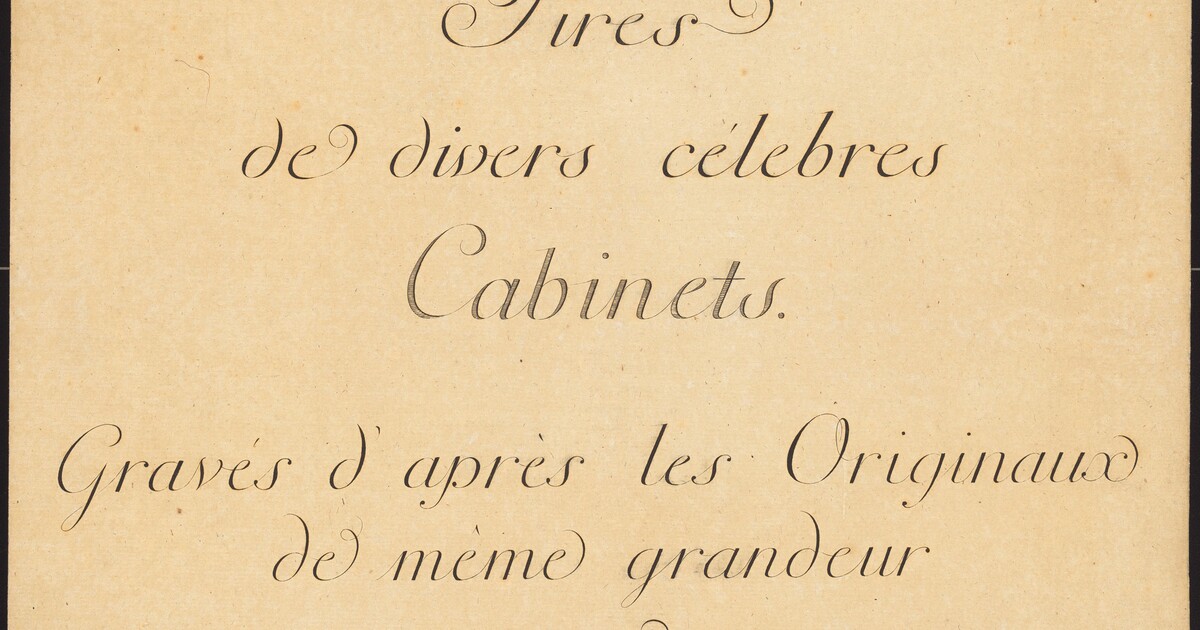 Tires
de divers célebres
Cabinets.
Gravés d'après les Originaux
de même grandeur